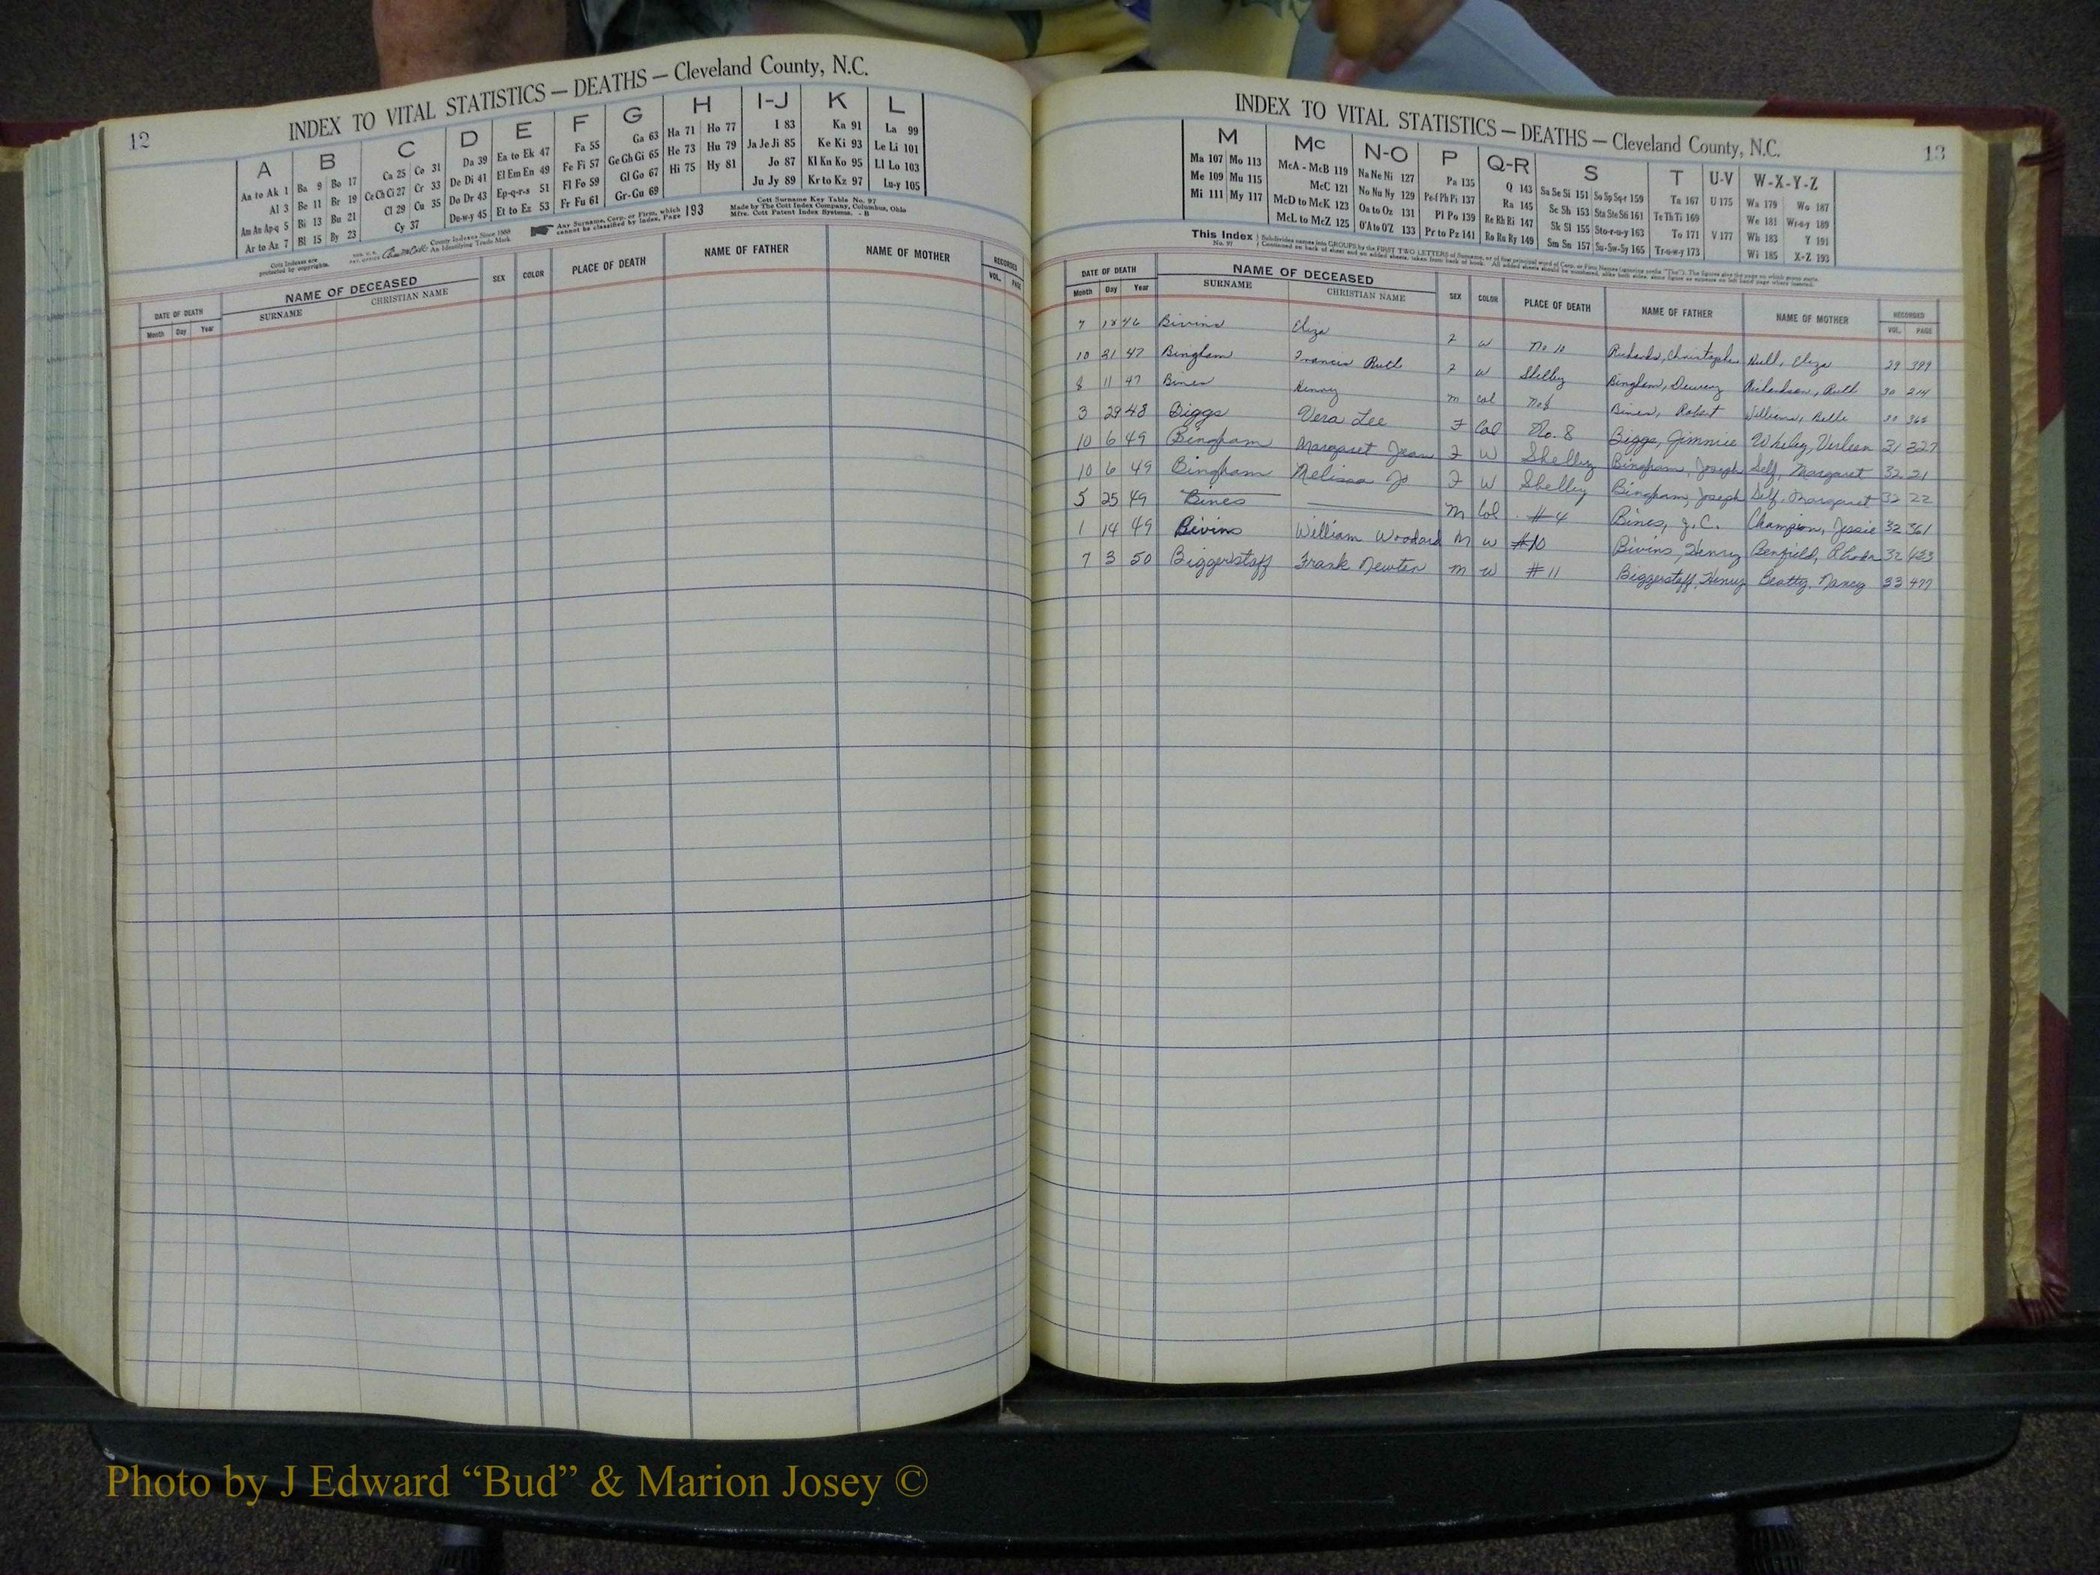 12
INDEX TO VITAL STATISTICS — DEATHS — Cleveland County, N.C.
A B C D E F G H I-J K L
Aa to Ak 1 Ba 9 Bo 17 Ca 25 Co 31 Da 39 Ea to Ek 47 Fa 55 Ga 63 Ha 71 Ho 77 I 83 Ka 91 La 99
Al 3 Be 11 Br 19 Ce Ch Ci 27 Cr 33 De Di 41 El Em En 49 Fe Fi 57 Ge Gh Gi 65 He 73 Hu 79 Ja Je Ji 85 Ke Ki 93 Le Li 101
Am An Ap-q 5 Bi 13 Bu 21 Cl 29 Cu 35 Do Dr 43 Ep-q-r-s 51 Fl Fo 59 Gl Go 67 Hi 75 Hy 81 Jo 87 Kl Kn Ko 95 Ll Lo 103
Ar to Az 7 Bl 15 By 23 Cy 37 Du-w-y 45 Et to Ez 53 Fr Fu 61 Gr-Gu 69 Ju Jy 89 Kr to Kz 97 Lu-y 105
Cott Indexes are protected by copyrights.
County Indexes Since 1888
An Identifying Trade Mark
Any Surname, Corp. or Firm, which cannot be classified by Index, Page 193
Cott Surname Key Table No. 97
Made by The Cott Index Company, Columbus, Ohio
Mfrs. Cott Patent Index Systems. - B
DATE OF DEATH NAME OF DECEASED SEX COLOR PLACE OF DEATH NAME OF FATHER NAME OF MOTHER RECORDED
Month Day Year SURNAME CHRISTIAN NAME VOL. PAGE
INDEX TO VITAL STATISTICS — DEATHS — Cleveland County, N.C.
13
M Mc N-O P Q-R S T U-V W-X-Y-Z
Ma 107 Mo 113 McA - McB 119 Na Ne Ni 127 Pa 135 Q 143 Sa Se Si 151 So Sp Sq-r 159 Ta 167 U 175 Wa 179 Wo 187
Me 109 Mu 115 McC 121 No Nu Ny 129 Pe-f Ph Pi 137 Ra 145 Sc Sh 153 Sta Ste Sti 161 Te Th Ti 169 We 181 Wr-u-y 189
Mi 111 My 117 McD to McK 123 Oa to Oz 131 Pl Po 139 Re Rh Ri 147 Sk Sl 155 Sto-r-u-y 163 To 171 V 177 Wh 183 Y 191
McL to McZ 125 O'A to O'Z 133 Pr to Pz 141 Ro Ru Ry 149 Sm Sn 157 Su-Sw-Sy 165 Tr-u-w-y 173 Wi 185 X-Z 193
This Index
No. 97
Subdivides names into GROUPS by the FIRST TWO LETTERS of Surname, or of first principal word of Corp. or Firm Names (ignoring prefix "The"). The figures give the page on which group starts.
Continued on back of sheet and on added sheets, taken from back of book. All added sheets should be numbered, alike both sides, same figure as appears on left hand page where inserted.
DATE OF DEATH NAME OF DECEASED SEX COLOR PLACE OF DEATH NAME OF FATHER NAME OF MOTHER RECORDED
Month Day Year SURNAME CHRISTIAN NAME VOL. PAGE
7 18 46 Bivins Eliza F W No 10 Richards, Christopher Hull, Eliza 29 399
10 21 47 Bingham Francis Ruth F W Shelby Bingham, Dewey Richardson, Ruth 30 214
8 11 47 Bines Henry M Col No 8 Bines, Robert Williams, Belle 30
3 29 48 Biggs Vera Lee F Col No. 8 Biggs, Jimmie Verleen 31 327
10 6 49 Bingham Margaret Jean F W Shelby Bingham, Joseph Self, Margaret 32 21
10 6 49 Bingham Melissa Jo F W Shelby Bingham, Joseph Self, Margaret 32 22
5 25 49 Bines M Col #4 Bines, J.C. Champion, Jessie 32 361
1 14 49 Bivins William Woodard M W #10 Bivins, Henry Benfield, Rhoda 32 623
7 3 50 Biggerstaff Frank Newton M W #11 Biggerstaff, Henry Beatty, Nancy 33 477
Photo by J Edward “Bud” & Marion Josey ©